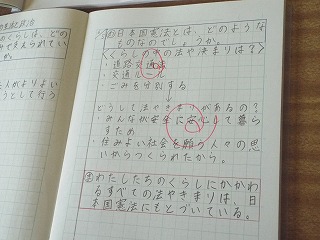 の憲法と政治
のくらしは、どの
て支えられてい
か。
た人がよりよい
うとして行う
5/10 ㋱日本国憲法とは、どのような
ものなのでしょうか。
くらしの中の法やきまりは?
・道路交通法
・交通ルール
・ごみを分別する
どうして法やきまりがあるの?
・みんなが安全に安心して暮ら
すため
・住みよい社会を願う人々の思
いからつくられたから。
㋮わたしたちのくらしにかかわ
るすべての法やきまりは、日
本国憲法にもとづいている。